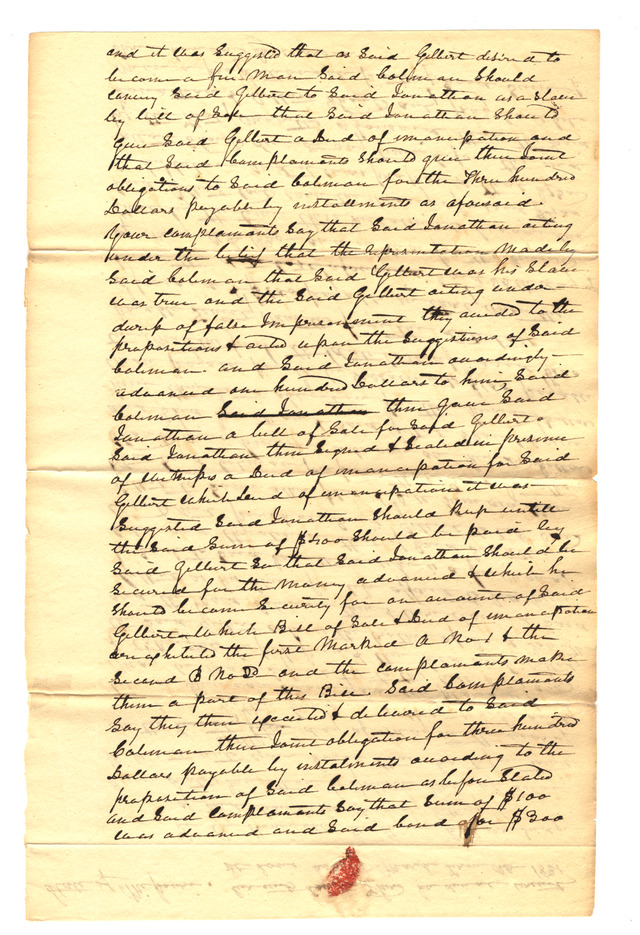 and it was Suggested that as Said Gilbert desired to
become a free Man Said Coleman Should
convey Said Gilbert to Said Jonathan as a Slave
by bill of Sale that Said Jonathan Should
give Said Gilbert a Deed of emancipation and
that Said Complainants Should give their Joint
obligations to Said Coleman for the Three hundred
Dollars payable by installments as aforesaid.
Your complainants Say that Said Jonathan acting
under the belief that the representation Made by
Said Coleman that Said Gilbert was his Slave
was true and the Said Gilbert acting under
duress of false Imprisonment they acceded to the
propositions & acted upon the Suggestions of Said
Coleman. and Said Jonathan accordingly
advanced one hundred Dollars to him, Said
Coleman Said Jonathan then gave Said
Jonathan a bill of Sale for Said Gilbert.
Said Jonathan then Signed & Sealed in presence
of Witness a Deed of emancipation for Said
Gilbert which deed of emancipation it was
Suggested Said Jonathan Should Keep untill
the Said Sum of $400 Should be paid by
Said Gilbert So that Said Jonathan Should be
Secured for the Money advanced & which he
Should become Security for on account of Said
Gilbert which Bill of Sale & Deed of emancipation
are exhibited the first Marked A No 1 & the
Second B No and the complainants make
them a part of this Bill. Said Complainants
Say they then executed & delivered to Said
Coleman their Joint obligation for three hundred
Dollars payable by instalments according to the
proposition of Said Coleman as before Stated
and Said Complainants Say that Sum of $100
was advanced and Said bond for $300